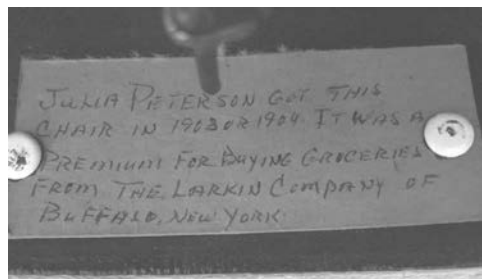 JULIA PETERSON GOT THIS
CHAIR IN 1903 OR 1904 IT WAS A
PREMIUM FOR BUYING GROCERIES
FROM THE LARKIN COMPANY OF
BUFFALO, NEW YORK.